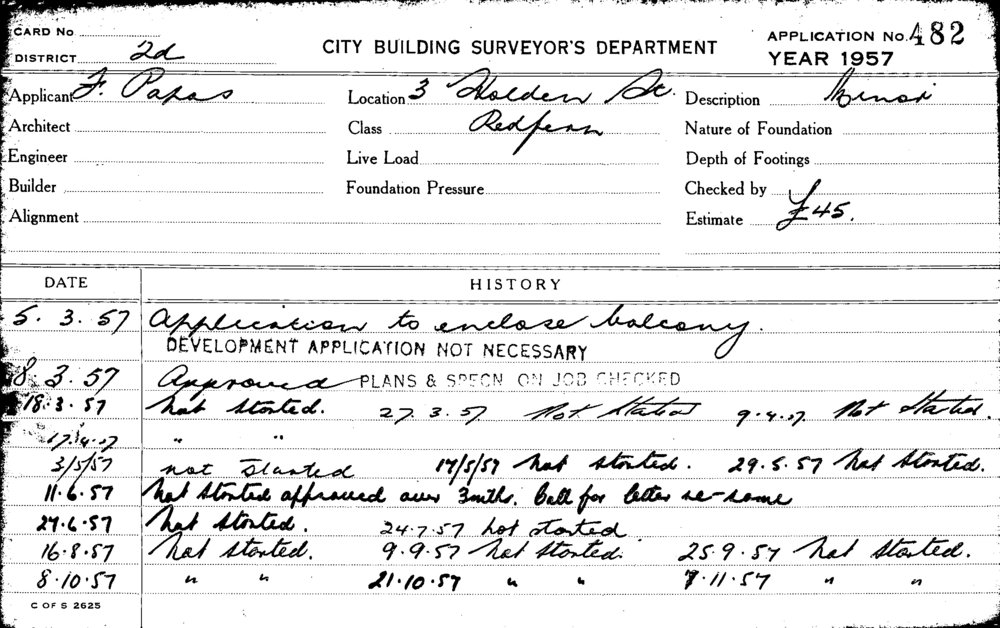 CARD No
APPLICATION No. 482
DISTRICT 2d
CITY BUILDING SURVEYOR'S DEPARTMENT
YEAR 1957
Applicant F. Papas Location 3 Holden St. Description Minor
Architect Class Redfern Nature of Foundation
Engineer Live Load Depth of Footings
Builder Foundation Pressure Checked by
Alignment Estimate £45.
DATE HISTORY
5. 3. 57 Application to enclose balcony.
DEVELOPMENT APPLICATION NOT NECESSARY
8. 3. 57 Approved PLANS & SPECN ON JOB CHECKED
18.3.57 Not Started. 27.3.57 Not Started 9.4.57 Not Started.
17.4.57 " "
3/5/57 not Started 17/5/57 Not Started. 29.5.57 Not Started.
11.6.57 Not Started approved over 3mths. Call for letter re-same
27.6.57 Not Started. 24.7.57 Not Started
16.8.57 Not Started. 9.9.57 Not Started. 25.9.57 Not Started.
8.10.57 " " 21.10.57 " " 7.11.57 " "
C OF S 2625